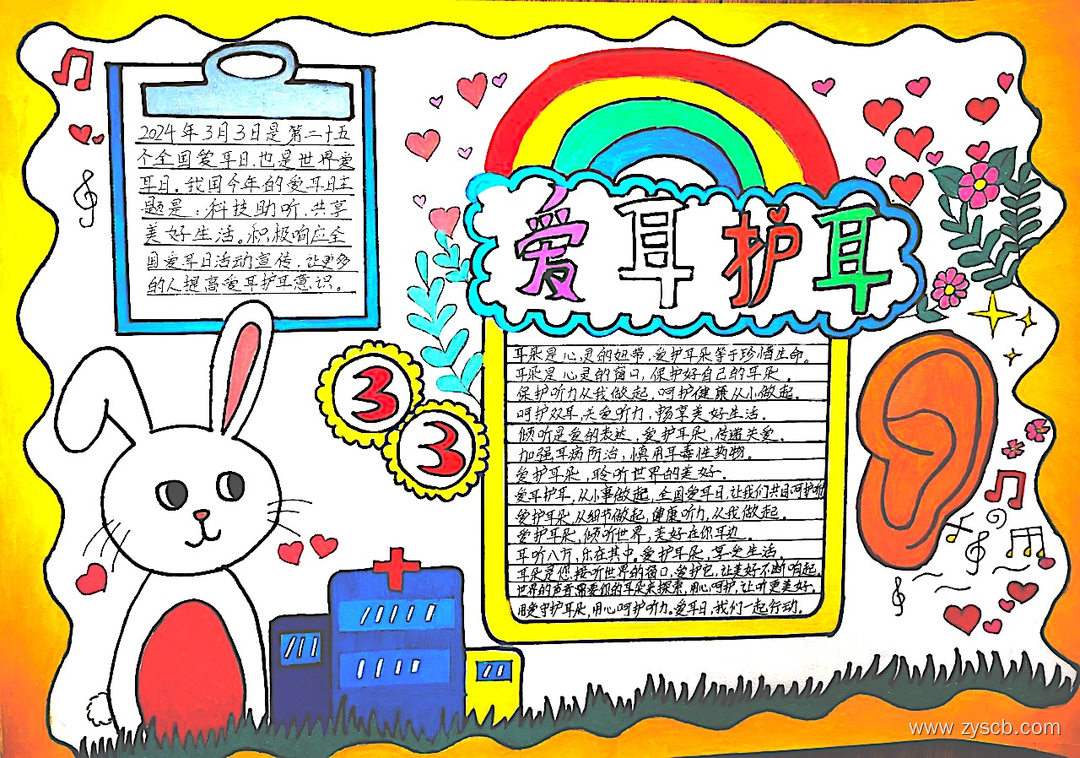 2024年3月3日是第二十五
个全国爱耳日,也是世界爱
耳日。我国今年的爱耳日主
题是:科技助听,共享
美好生活。积极响应全
国爱耳日活动宣传,让更多
的人提高爱耳护耳意识。
爱耳护耳
3
3
耳朵是心灵的纽带,爱护耳朵等于珍惜生命。
耳朵是心灵的窗口,保护好自己的耳朵。
保护听力从我做起,呵护健康从小做起。
呵护双耳,关爱听力,畅享美好生活。
倾听是爱的表达,爱护耳朵,传递关爱。
加强耳病防治,慎用耳毒性药物。
爱护耳朵,聆听世界的美好。
爱耳护耳,从小事做起,全国爱耳日,让我们共同呵护
爱护耳朵,从细节做起,健康听力,从我做起。
爱护耳朵,倾听世界,美好在你耳边。
耳听八方,乐在其中,爱护耳朵,享受生活。
耳朵是您接听世界的窗口,爱护它,让美好不断响起。
世界的声音需要你的耳朵来探索,用心呵护,让听更美好。
用爱守护耳朵,用心呵护听力。爱耳日,我们一起行动。
www.zyscb.com